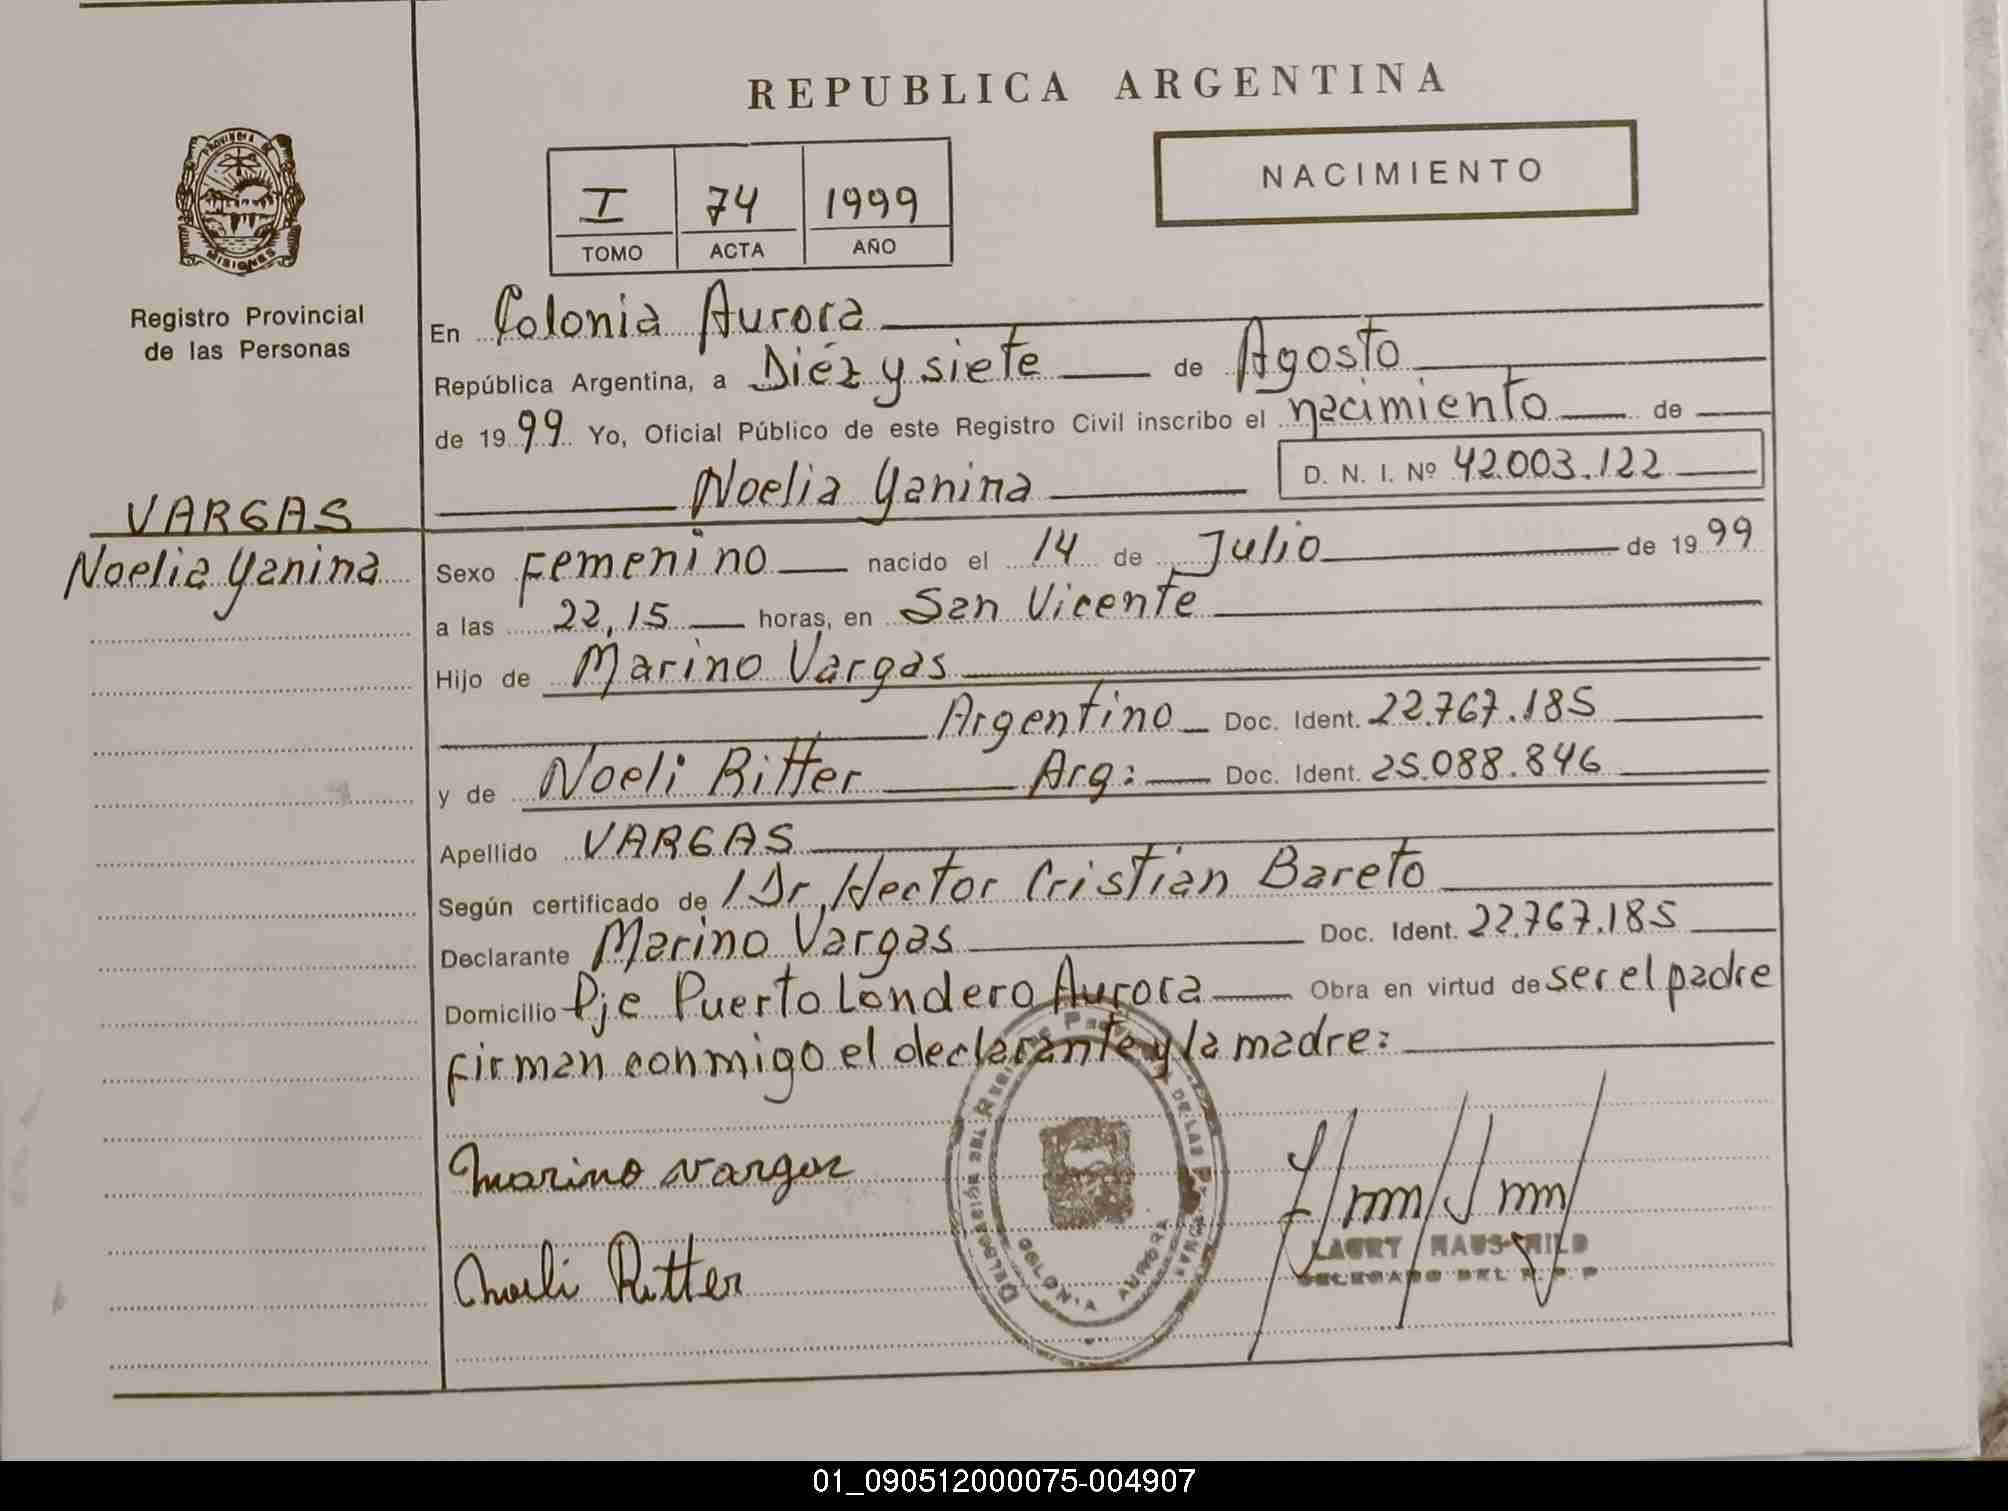 REPUBLICA ARGENTINA
PROVINCIA DE
MISIONES
Registro Provincial
de las Personas
I 74 1999
TOMO ACTA AÑO
NACIMIENTO
En Colonia Aurora
República Argentina, a Diéz y siete de Agosto
de 1999 Yo, Oficial Público de este Registro Civil inscribo el nacimiento de
Noelia Yanina D. N. I. Nº 42.003.122
VARGAS
Noelia Yanina
Sexo Femenino nacido el 14 de Julio de 1999
a las 22,15 horas, en San Vicente
Hijo de Marino Vargas
Argentino Doc. Ident. 22.767.185
y de Noeli Ritter Arg: Doc. Ident. 25.088.846
Apellido VARGAS
Según certificado de / Dr, Hector Cristian Bareto
Declarante Marino Vargas Doc. Ident. 22.767.185
Domicilio Pje Puerto Londero Aurora Obra en virtud de ser el padre
firman conmigo el declarante y la madre:
Marino Vargas
Noeli Ritter
DELEGACIÓN DEL REGISTRO PROVINCIAL DE LAS PERSONAS
COLONIA AURORA
DELEGADO DEL R. P. P
01_090512000075-004907